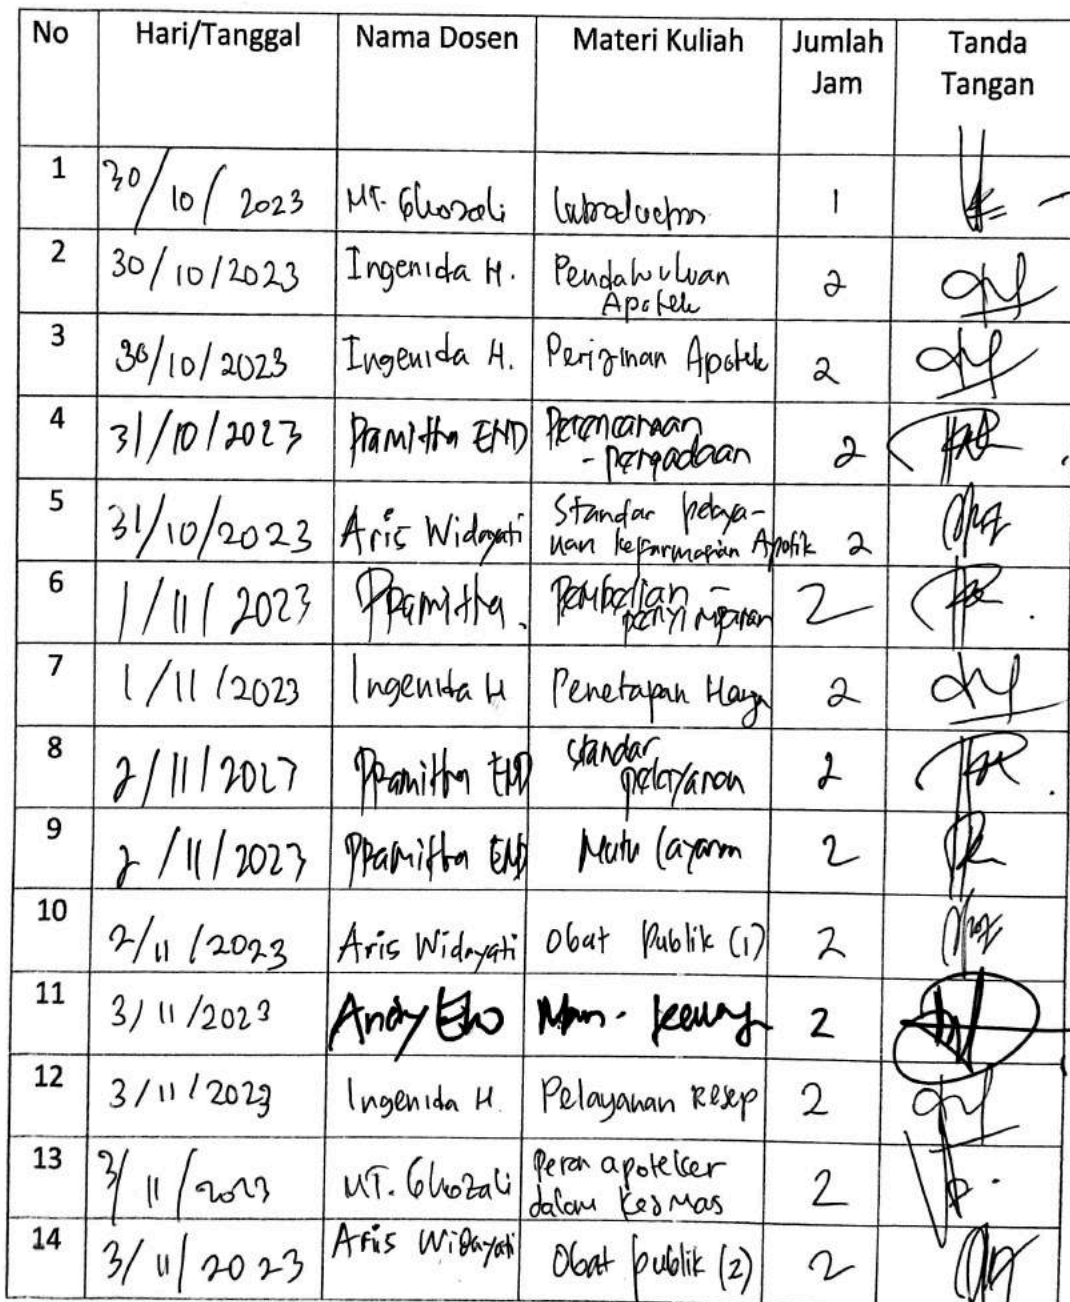 No Hari/Tanggal Nama Dosen Materi Kuliah Jumlah Jam Tanda Tangan
1 30/10/2023 MT. Ghozali Introduction 1
2 30/10/2023 Ingenida H. Pendahuluan Apotek 2
3 30/10/2023 Ingenida H. Perizinan Apotek 2
4 31/10/2023 Pramitha END Perencanaan - pengadaan 2
5 31/10/2023 Aris Widayati Standar pelaya- nan kefarmasian Apotik 2
6 1/11/2023 Pramitha. Pembelian - penyimpanan 2
7 1/11/2023 Ingenida H Penetapan Harga 2
8 2/11/2023 Pramitha END standar pelayanan 2
9 2/11/2023 Pramitha END Mutu layanan 2
10 2/11/2023 Aris Widayati Obat Publik (1) 2
11 3/11/2023 Andy Eko Man. keuang 2
12 3/11/2023 Ingenida H. Pelayanan Resep 2
13 3/11/2023 MT. Ghozali Peran apoteker dalam Kesmas 2
14 3/11/2023 Aris Widayati Obat publik (2) 2